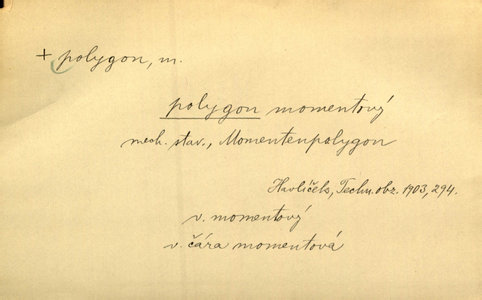 + polygon, m.
polygon momentový
mech. stav., Momentenpolygon
Havlíček, Techn. obz. 1903, 294.
v. momentový
v. čára momentová